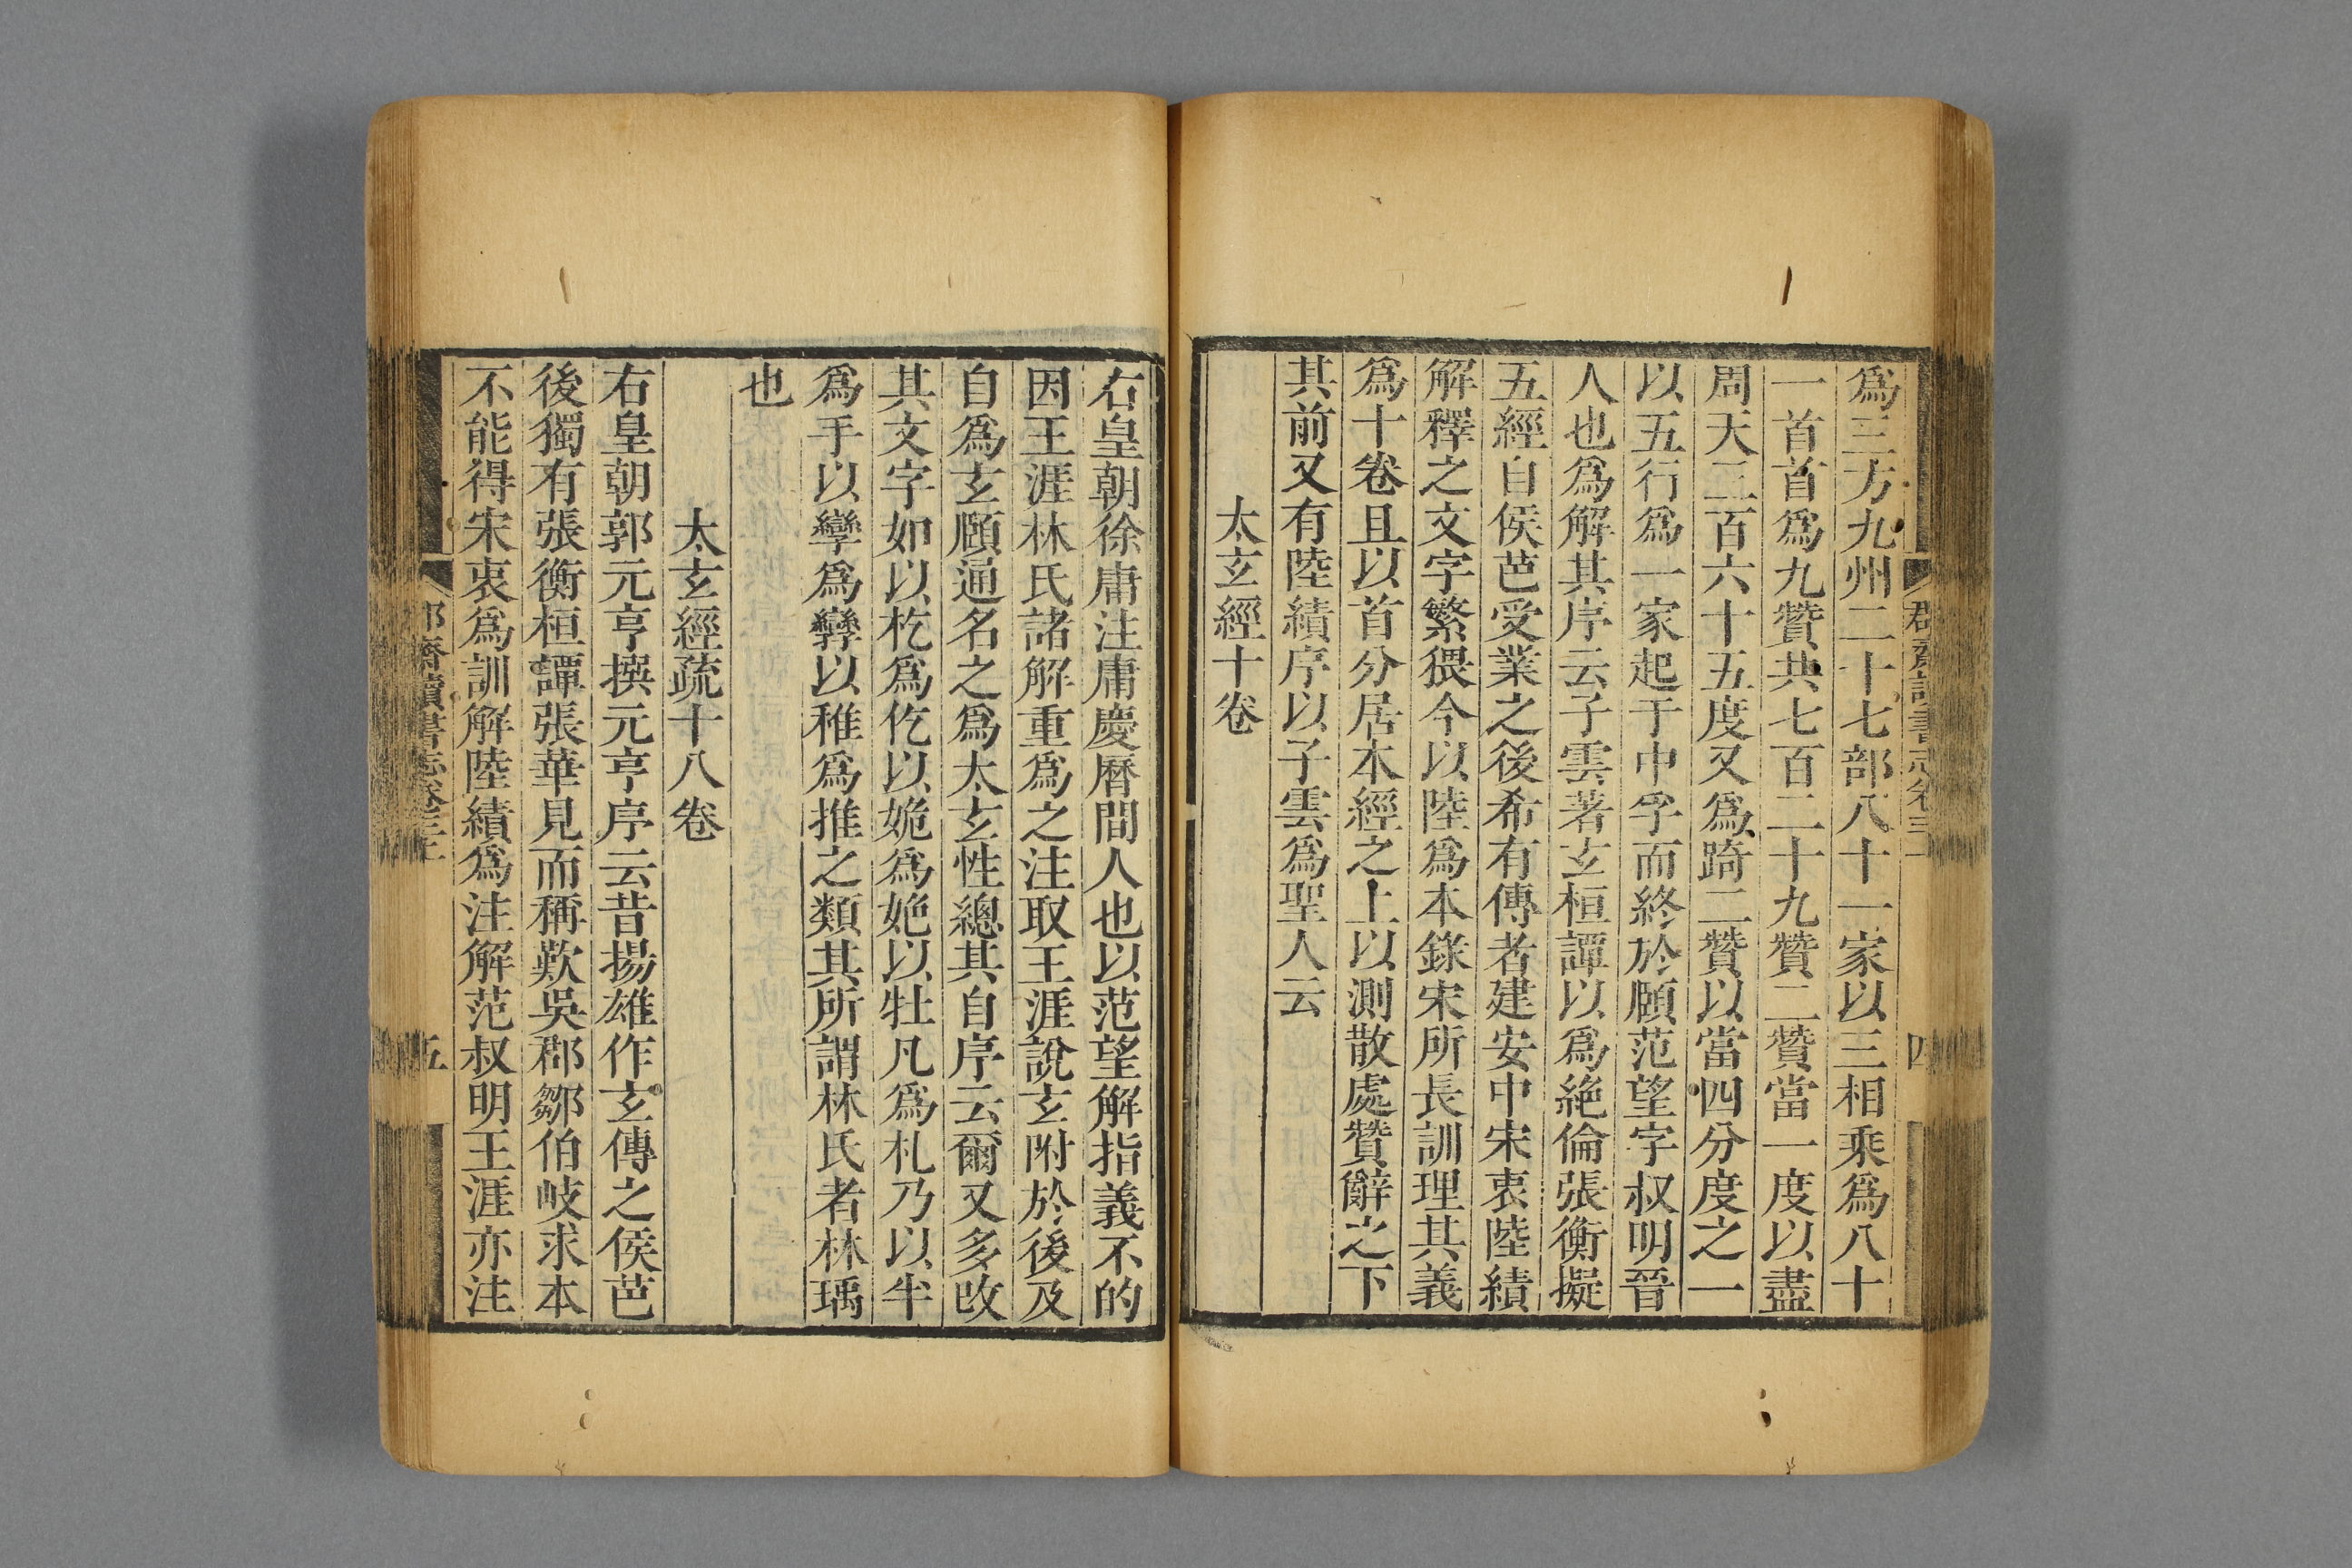 爲三方九州二十七部八十一家以三相乘爲八十
一首首爲九贊共七百二十九贊二贊當一度以盡
周天三百六十五度又爲踦二贊以當四分度之一
以五行爲一家起于中孚而終於頤范望字叔明晉
人也爲解其序云子雲著玄桓譚以爲絶倫張衡擬
五經自侯芭受業之後希有傳者建安中宋衷陸績
解釋之文字繁猥今以陸爲本錄宋所長訓理其義
爲十卷且以首分居本經之上以測散處贊辭之下
其前又有陸績序以子雲爲聖人云
太玄經十卷
右皇朝徐庸注庸慶曆間人也以范望解指義不的
因王涯林氏諸解重爲之注取王涯說玄附於後及
自爲玄頤通名之爲太玄性總其自序云爾又多改
其文字如以杚爲仡以娩爲㚿以牡凡爲札乃以半
爲手以孿爲孿以稚爲推之類其所謂林氏者林瑀
也
太玄經疏十八卷
右皇朝郭元亨撰元亨序云昔揚雄作玄傳之侯芭
後獨有張衡桓譚張華見而稱歎吳郡鄒伯岐求本
不能得宋衷爲訓解陸績爲注解范叔明王涯亦注
郡齋讀書志卷三上
五